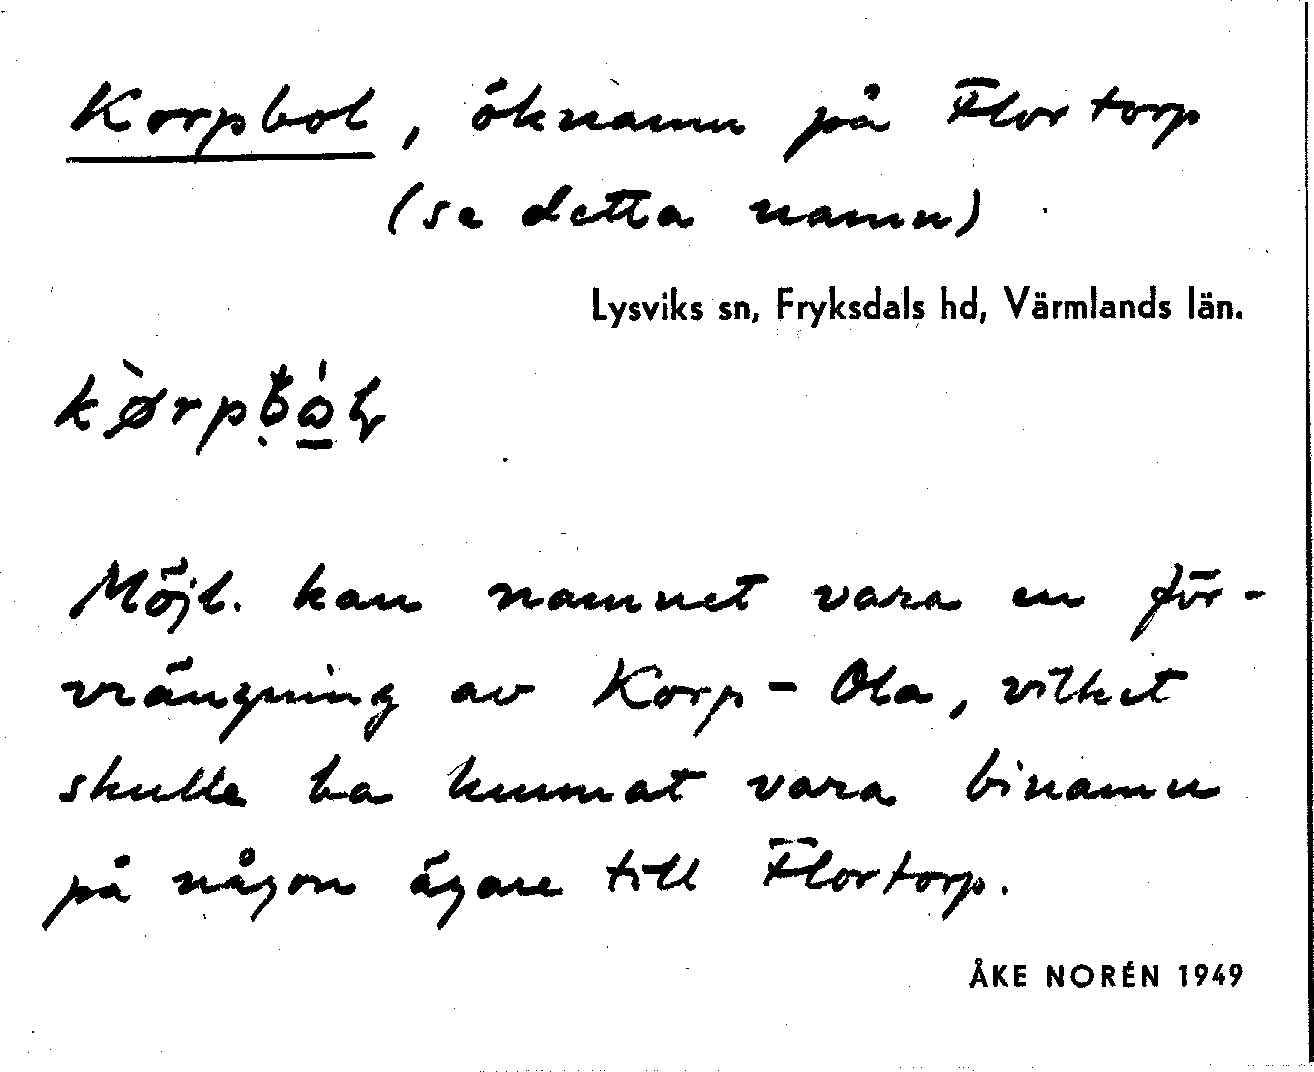 Korpbol, öknamn på Flortorp
(se detta namn)
Lysviks sn, Fryksdals hd, Värmlands län.
Möjl. kan namnet vara en för-
vrängning av Korp-Ola, vilket
skulle ha kunnat vara binamn
på någon ägare till Flortorp.
ÅKE NORÉN 1949